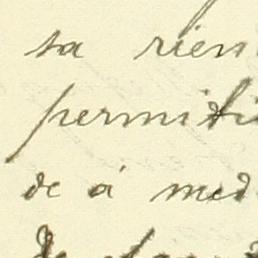 sa rien
permiti
de á med